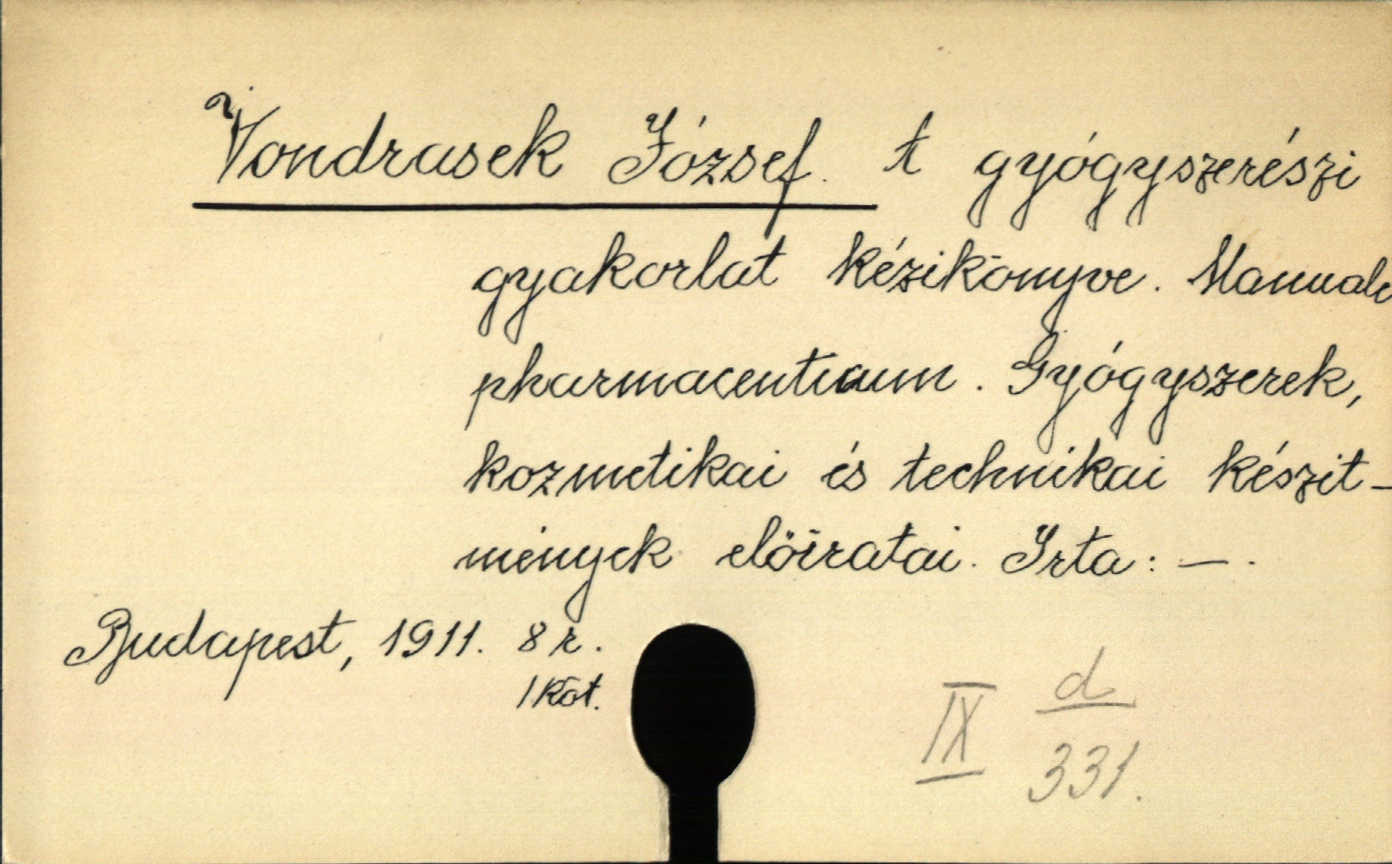 Vondrasek József. A gyógyszerészi
gyakorlat kézikönyve. Manuale
pharmaceuticum. Gyógyszerek,
kozmetikai és technikai készit-
mények előiratai. Irta: —.
Budapest, 1911. 8 r.
1 köt.
IX d
331.